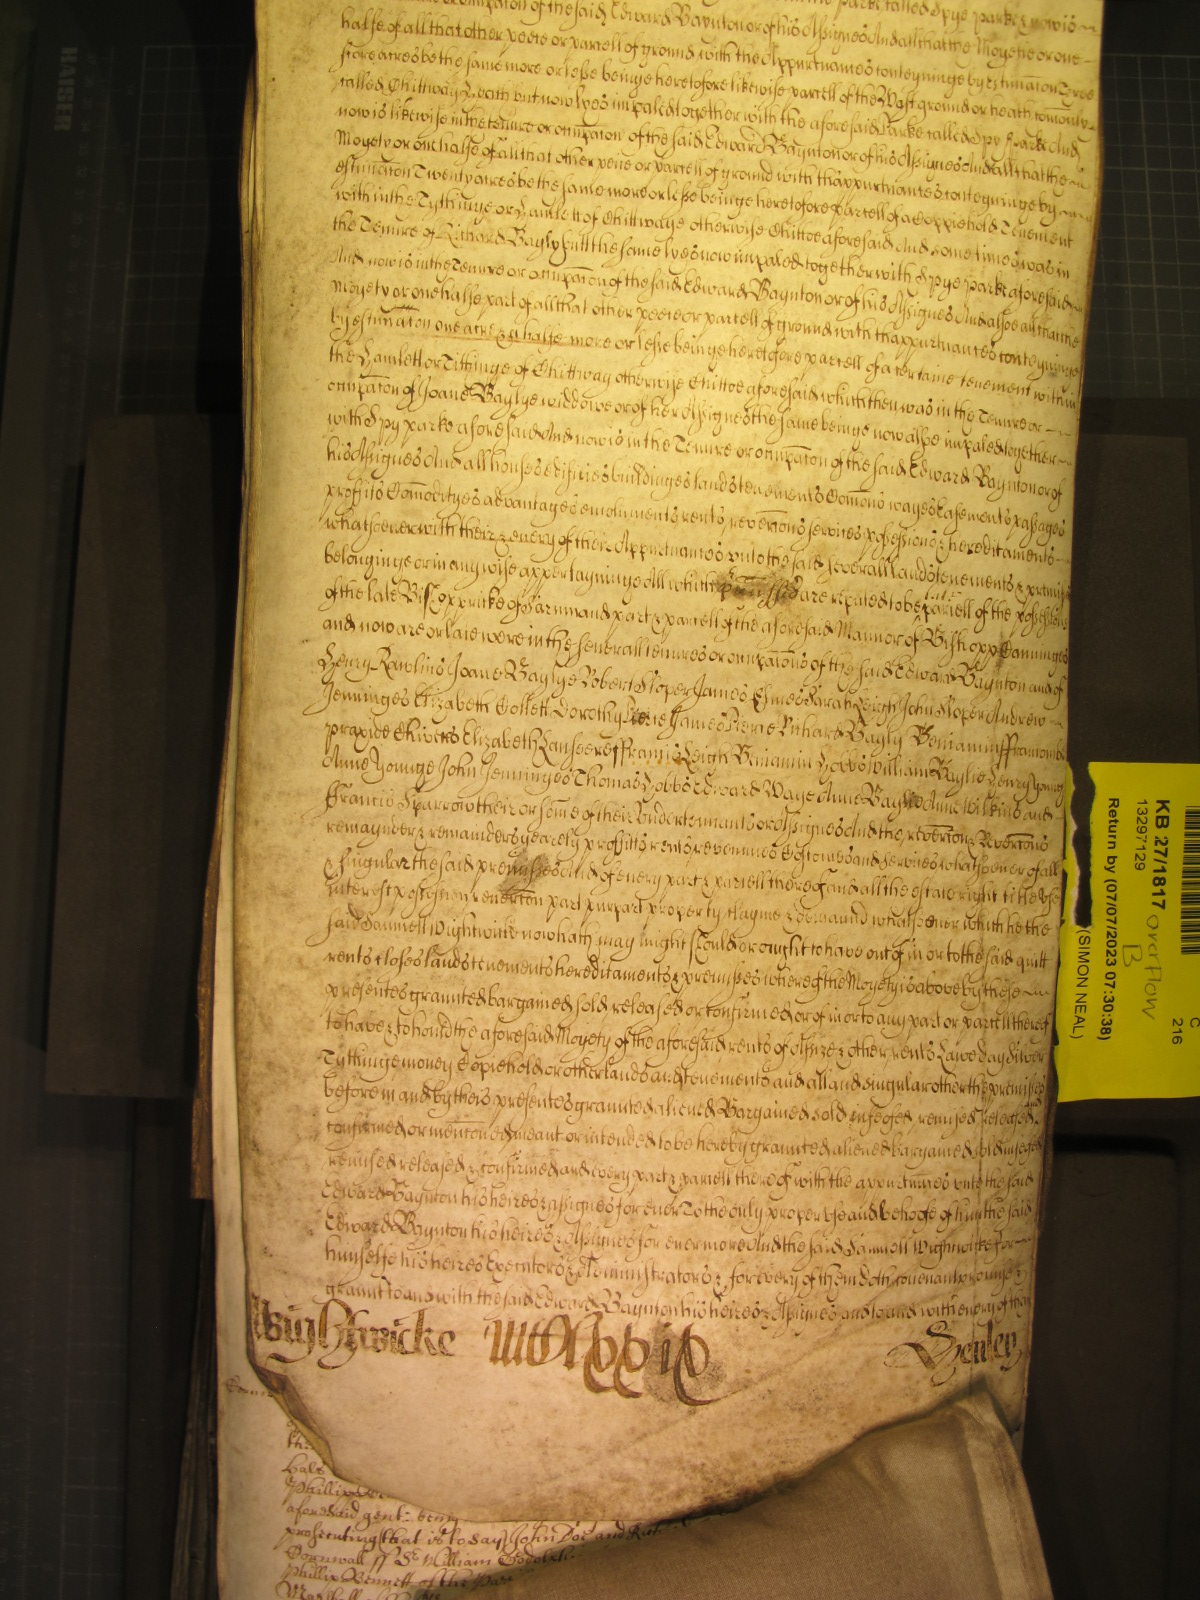 occupacon of the said Edward Baynton or of his Assignes And all that the Moyetie or one
halfe of all that other peece or parcell of ground with the Appurtnances conteyninge by estimacon Three
score acres be the same more or lesse beinge heretofore likewise parcell of the Wast ground or heath comonly
called Chittway heath but now lyes impaled together with the aforesaid Parke called Spy Parke And
now is likewise in the tenure or occupacon of the said Edward Baynton or of his Assignes And all that the
Moyety or one halfe of all that other peece or parcell of ground with thappurtnances conteyninge by
estimacon Twenty acres be the same more or lesse beinge heretofore parcell of a Coppiehold Tenement
with in the Tythinge or Hamlett of Chittwaye otherwise Chittoe aforesaid And some times was in
the Tenure of Richard Bayly but the same lyes now impaled together with Spye parke aforesaid
And now is in the Tenure or occupacon of the said Edward Baynton or of his Assignes And also all that the
Moyety or one halfe part of all that other peece or parcell of ground with thappurtnances conteyninge
by estimacon one acre & a halfe more or lesse beinge heretofore parcell of a certaine tenement within
the Hamlett or Tithinge of Chittway otherwise Chittoe aforesaid which then was in the Tenure or
occupacon of Joane Baylye widdowe or of her Assignes the same beinge now also impaled together
with Spy parke aforesaid And now is in the Tenure or occupacon of the said Edward Baynton or of
his Assignes And all houses edifices buildinges lands tenements Comons wayes Easements passages
profitts Comodityes advantages emoluments rents revercons services possessions & hereditaments
whatsoever with their & every of their Appurtnances unto the said severall lands tenements & premisses
belonginge or in any wise appertayninge All which premisses are reputed to be parcell of the possessions
of the late Bishoppricke of Sarum and part & parcell of the aforesaid Mannor of Bishopps Canninges
and now are or late were in the severall tenures or occupacons of the said Edward Baynton and of
Henry Rawlins Joane Baylye Robert Sloper James Sarah Leigh John Sloper Andrew
Jenninges Elizabeth Collett Dorothy James Pierce Richard Bayly Benjamin
praxide Chivers Elizabeth ffrancis Leigh Benjamin Hobbs William Baylie Henry Young
Anne Younge John Jenninges Thomas Hobbs Edward Waye Anne Baylie Anne Wilkins and
Francis Sparrow their or some of their Undertennants or Assignes And the revercon & Revercons
remaynder & remainders yearely profitts rents revennues Customes and services whatsoever of all
& singular the said premisses And of every part & parcell thereof and all the estate right title use
interest possession revercon part purpart property clayme & demaund whatsoever which he the
said Samuell Wightwicke now hath may might should or ought to have out of in or to the said quitt
rents closes lands tenements hereditaments & premisses whereof the Moyety is above by these
presentes graunted bargained sold released or confirmed or of in or to any part or parcell thereof
to have & to hould the aforesaid Moyety of the aforesaid rents of Assize & other rents Lawe day silver
Tythinge money Copiehold or other lands and tenements and all and singular other the premisses
before in and by theis presentes graunted aliened Bargained sold infeoffed remised released
confirmed or menconed meant or intended to be hereby graunted aliened bargained sold infeoffed
remised released & confirmed and every part & parcell thereof with the appurtnances unto the said
Edward Baynton his heires & assignes for ever To the only proper use and behoofe of him the said
Edward Baynton his heires & Assignes for ever more And the said Samuell Wightwicke for
himselfe his heires Executors & Administrators & for every of them doth covenant promise &
graunt to and with the said Edward Baynton his heires & Assignes and to and with every of them
Wightwicke
Henley
Phillipp
aforesaid gent: being
prosecuting that is to say John Doe and Rich
Cornwall ss Sr William Godolph
Phillip Bennett of the Par
KB 27/1817
13297129
overflow
B
Return by (07/07/2023 07:30:38)
(SIMON NEAL)
C
216
KAISER